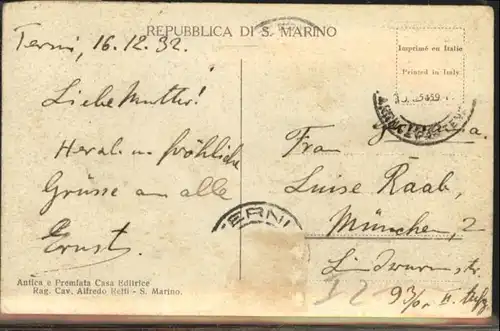 REPUBBLICA DI S. MARINO
Terni, 16.12.32.
Imprimé en Italie
Printed in Italy
Liebe Mutter!
Herzl. u. fröhliche
Grüsse an alle
Ernst.
Germania.
Frau
Luise Raab,
München, 2
Lindwurmstr.
TERNI
Antica e Premiata Casa Editrice
Rag. Cav. Alfredo Reffi - S. Marino.